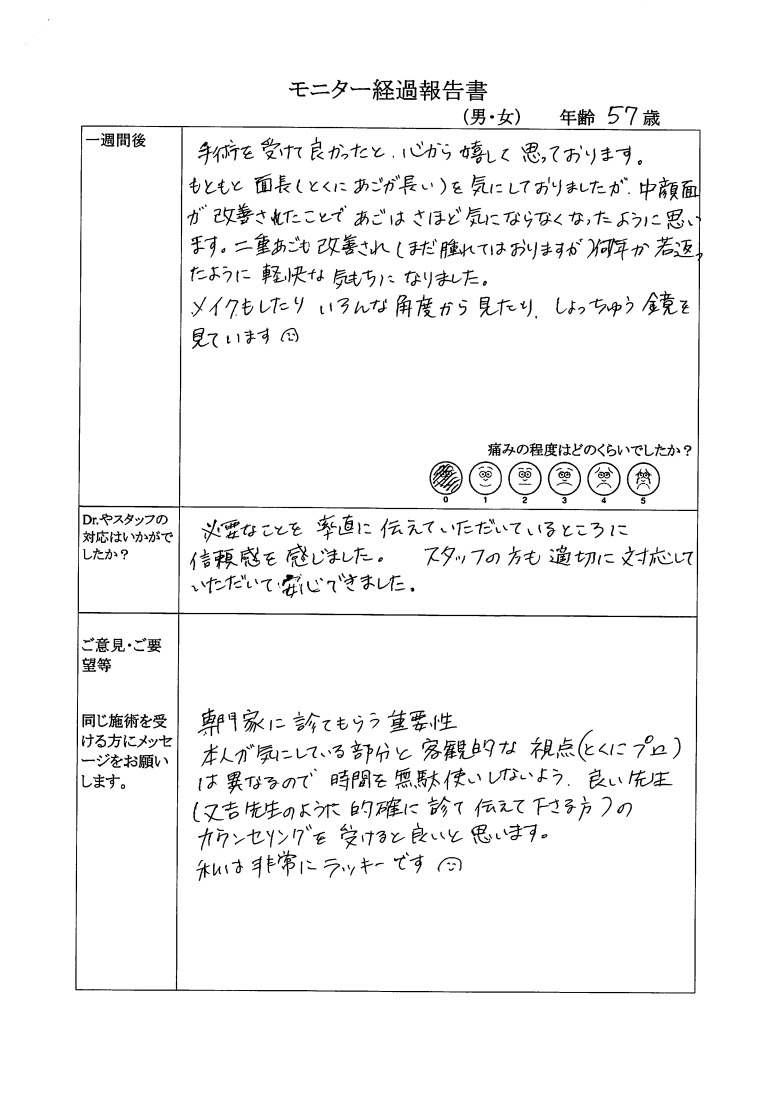 モニター経過報告書
(男・女) 年齢 57歳
一週間後
手術を受けて良かったと、心から嬉しく思っております。
もともと面長(とくにあごが長い)を気にしておりましたが、中顔面
が改善されたことであごはさほど気にならなくなったように思い
ます。二重あごも改善され(まだ腫れてはおりますが)何年か若返っ
たように軽快な気もちになりました。
メイクもしたりいろんな角度から見たり、しょっちゅう鏡を
見ています
痛みの程度はどのくらいでしたか?
0 1 2 3 4 5
Dr.やスタッフの
対応はいかがで
したか?
必要なことを率直に伝えていただいているところに
信頼感を感じました。 スタッフの方も適切に対応して
いただいて安心できました。
ご意見・ご要
望等
同じ施術を受
ける方にメッセ
ージをお願い
します。
専門家に診てもらう重要性
本人が気にしている部分と客観的な視点(とくにプロ)
は異なるので時間を無駄使いしないよう、良い先生
(又吉先生のように的確に診て伝えて下さる方)の
カウンセリングを受けると良いと思います。
私は非常にラッキーです